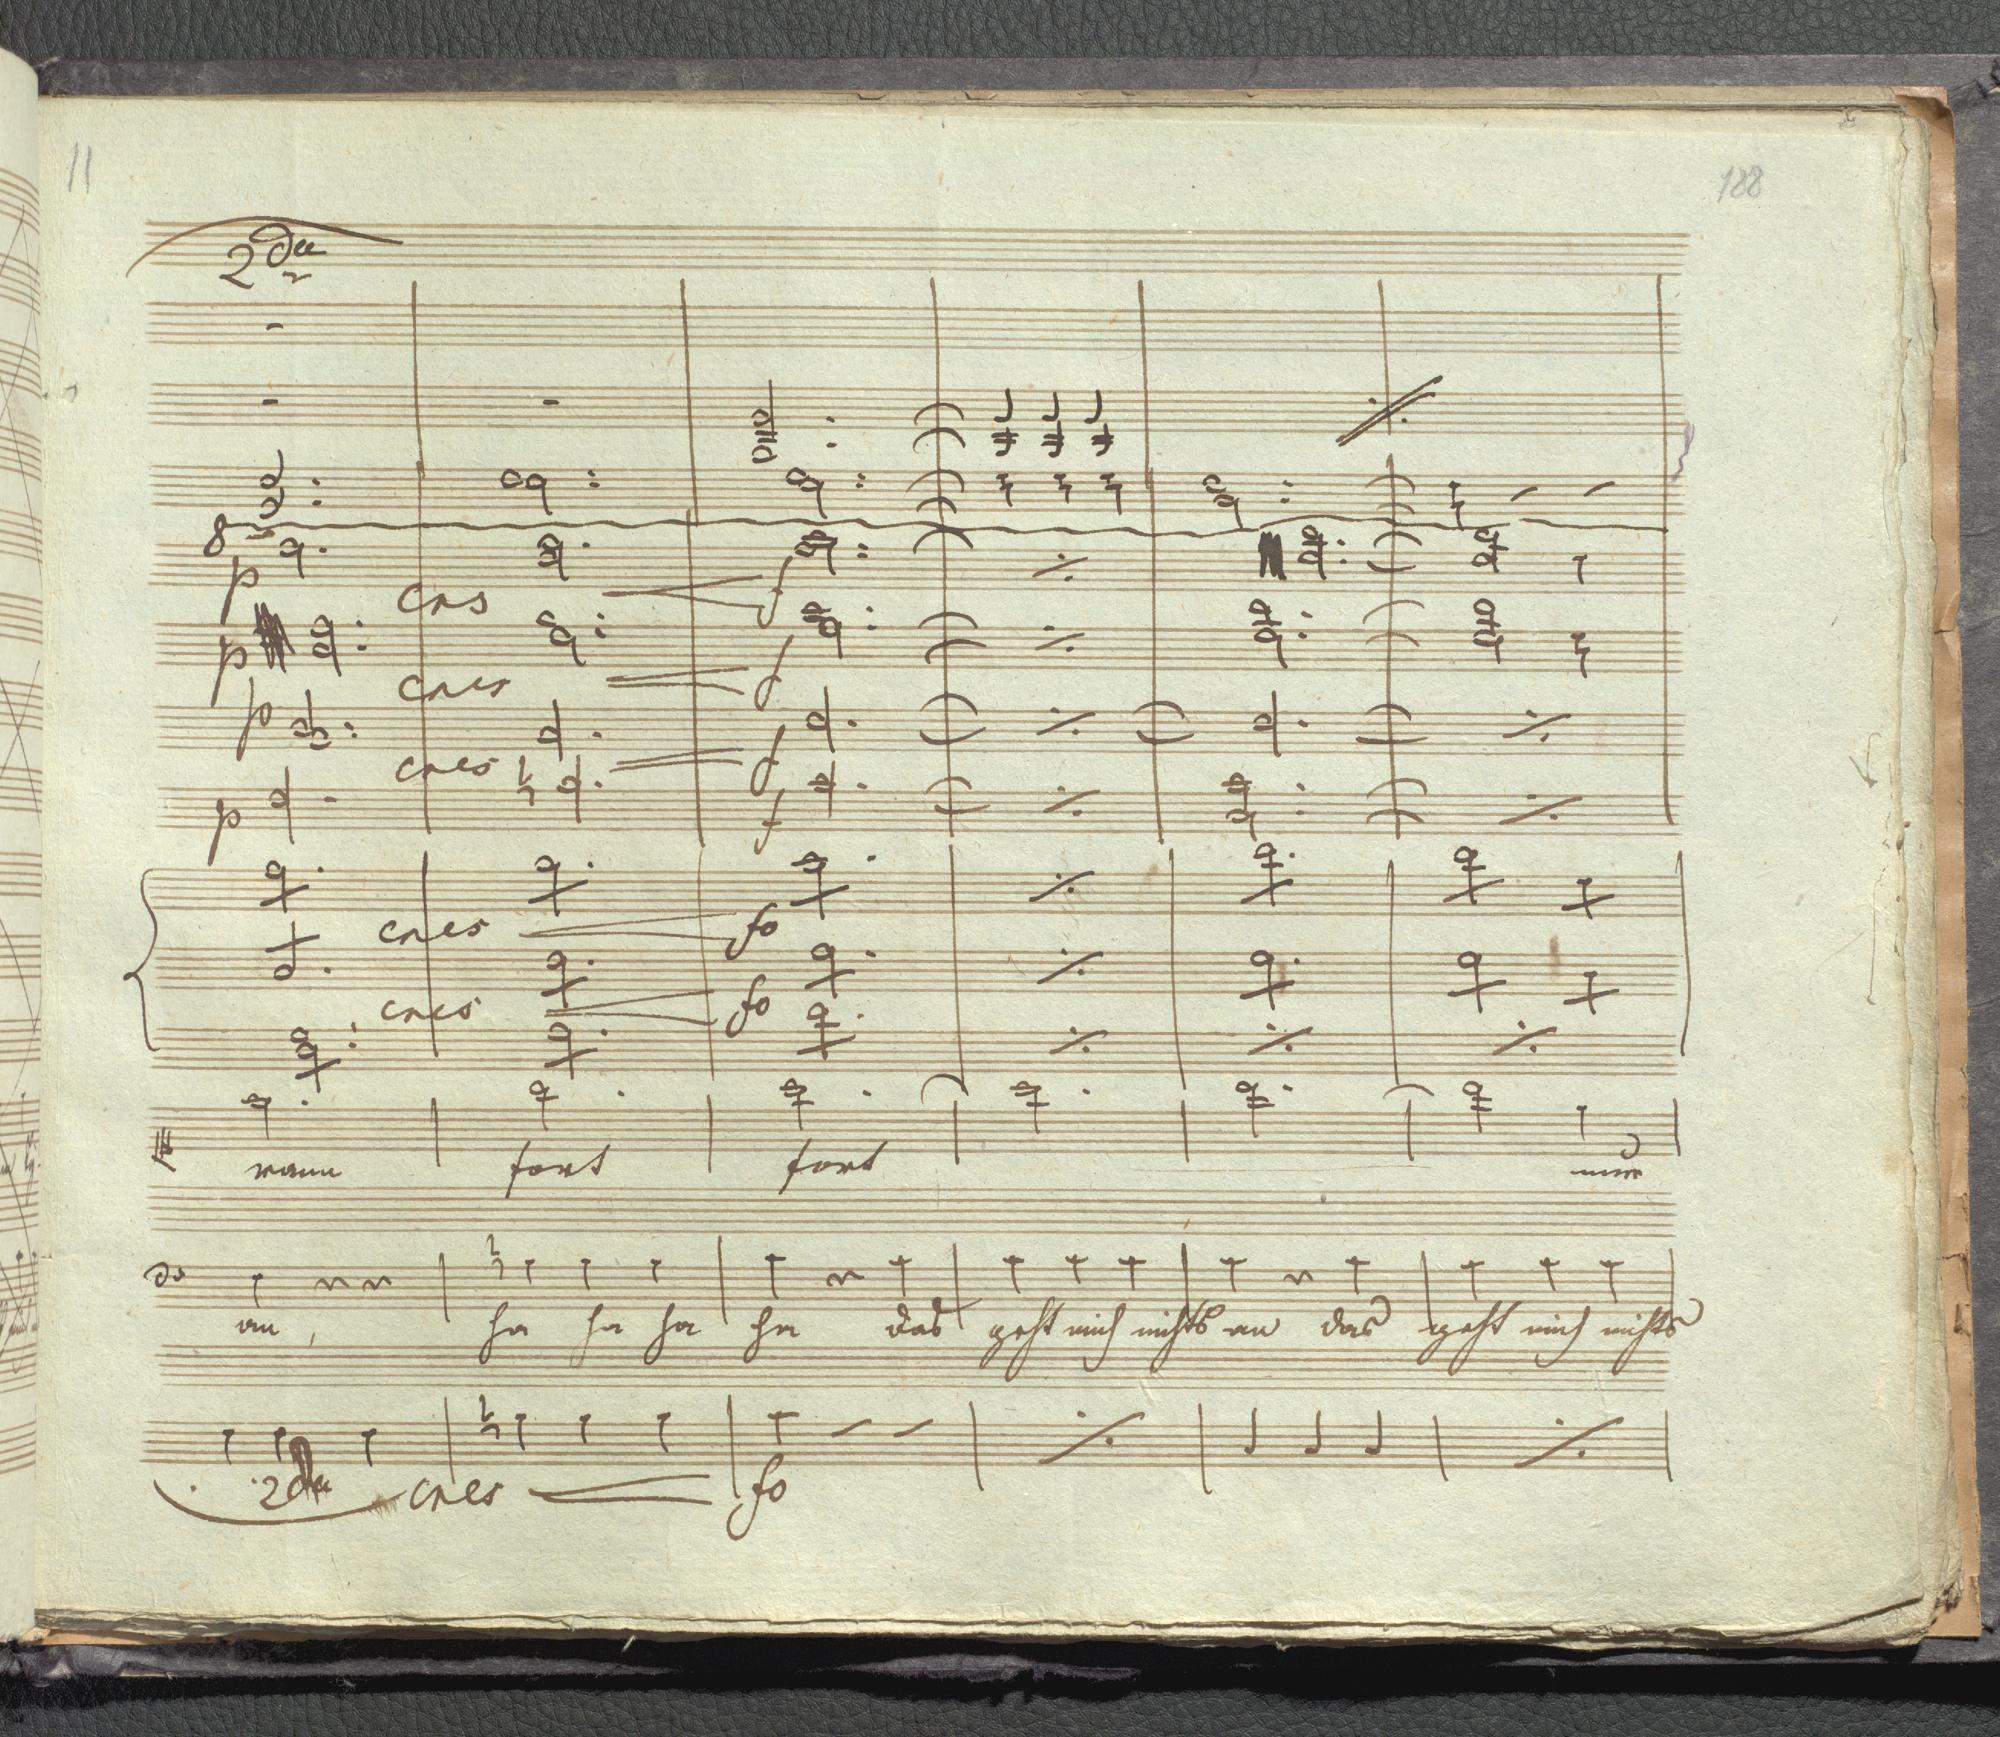 11
188
2da
8
p
cres
f
p
cres
f
p
cres
f
p
f
cres
fo
cres
fo
fort fort
an, ha ha ha ha das geht mich nichts an das geht mich nichts
2da cres fo